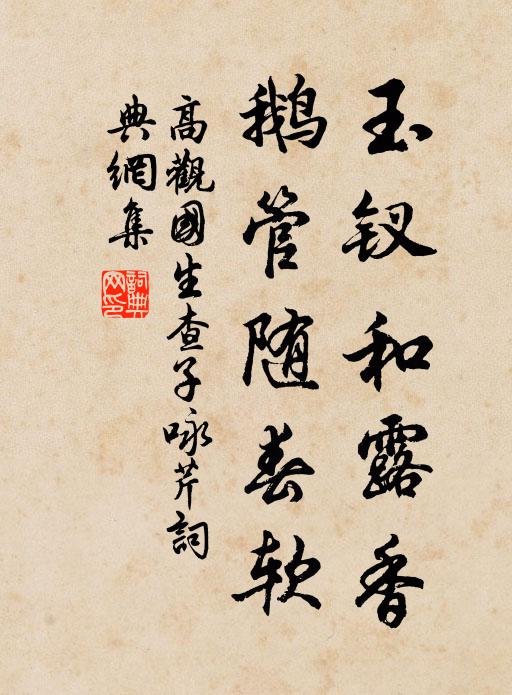 玉钗和露香
鹅管随春软
高觀國生查子咏芹詞
典網集
詞典网印